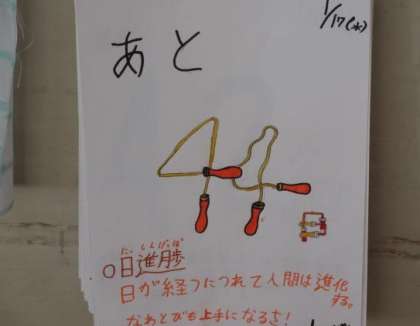 1/17(水)
あと
44
にっしんげっぽ
○日進月歩
日が経つにつれて人間は進化
する。
なわとびも上手になるさ!